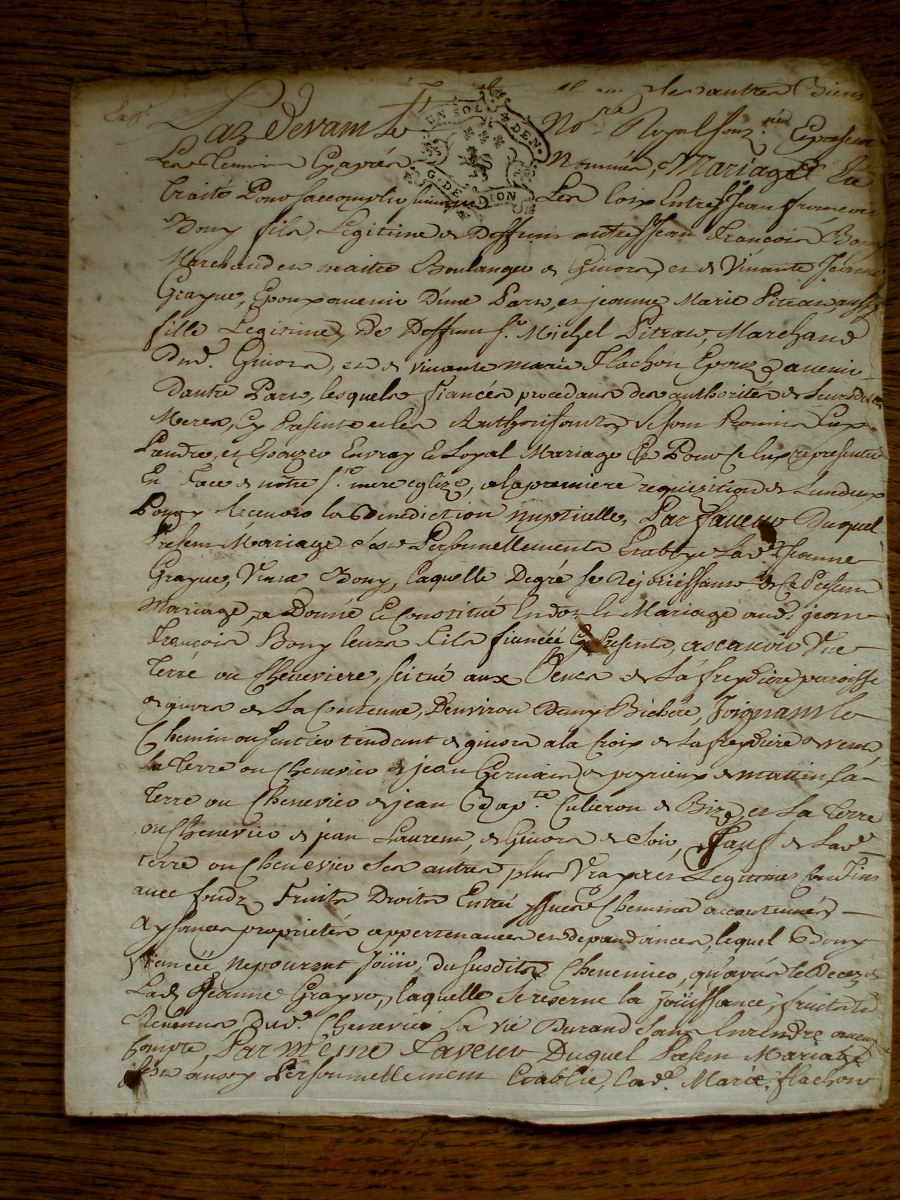 les autres Biens
Pardevant le No.re Royal sous.né En presence
Les Temoins Cy apres Nommés, Mariage a été
UN SOL 4 DEN.
G. DE DION
traité Pour s'accomplir suivant Les loix Entre S.r Jean françois
Bony fils Legitime de Deffunt autre S.r Jean François Bony
Marchand et maitre Boulanger de Givors, et de Vivante Jeanne
Grayue, Epoux avenir D'une Part, et jeanne Marie Pitrat, aussy
fille Legitime, De Deffunt S.r Michel Pitrat, Marchand
Dud. Givors, et de vivante marie Flachon Epouze avenir
Dautre Part, lesquels fiancés procedans des authorités de Leursdites
Meres, Cy Presente et les Authorisantes, se sont Promis
prendre, et Epouzer En vray & Loyal Mariage & Pour Ce se representer
En Face de notre S.te mere eglize, a la premiere requisition de Lun deux
Pour y Recevoir la Benediction nuptialle, Par faveur Duquel
Present Mariage s'est Personnellement Etablye La d.e Jeanne
Grayue, Veuve Bony, Laquelle De gré se Rejouissant de Ce Present
Mariage, a Donné & Constitué En dot de Mariage aud. jean
François Bony leurs Fils fiancée Cy Presente, a scavoir Une
Terre ou Cheneviere, scitué aux de La freydiere paroisse
de givors de La Contenue, D'environ Deux Bichere, Joignant le
Chemin ou sentier tendant de givors a la Croix de La freydiere de vent
La terre ou Chenevier de jean Germain de de mattin La
Terre ou Chenevier de jean Bap.te de Bize, et La terre
ou Chenevier de jean Laurent, de Givors de Soir, Sauf de La d.e
terre ou Chenevier Ses autres plus Vrayes & Legitimes Confins
avec fondz Fruits Droits Entrée yssues Chemins accoutumés
aysances propriétés appertenances et dependances, lequel Bony
fiancé ne pourrat Jouir, du susdit Chenevier, qu'apres le Decez de
Lad. Jeanne Grayve, laquelle se reserve la joüissance, fruits et
Revenus Dud. Chenevier sa vie Durand Sans En rendre aucun
Compte, Par Même Faveur Duquel Present Mariage
s'est aussy Personnellement Etablie, Lad.e Marie flachon